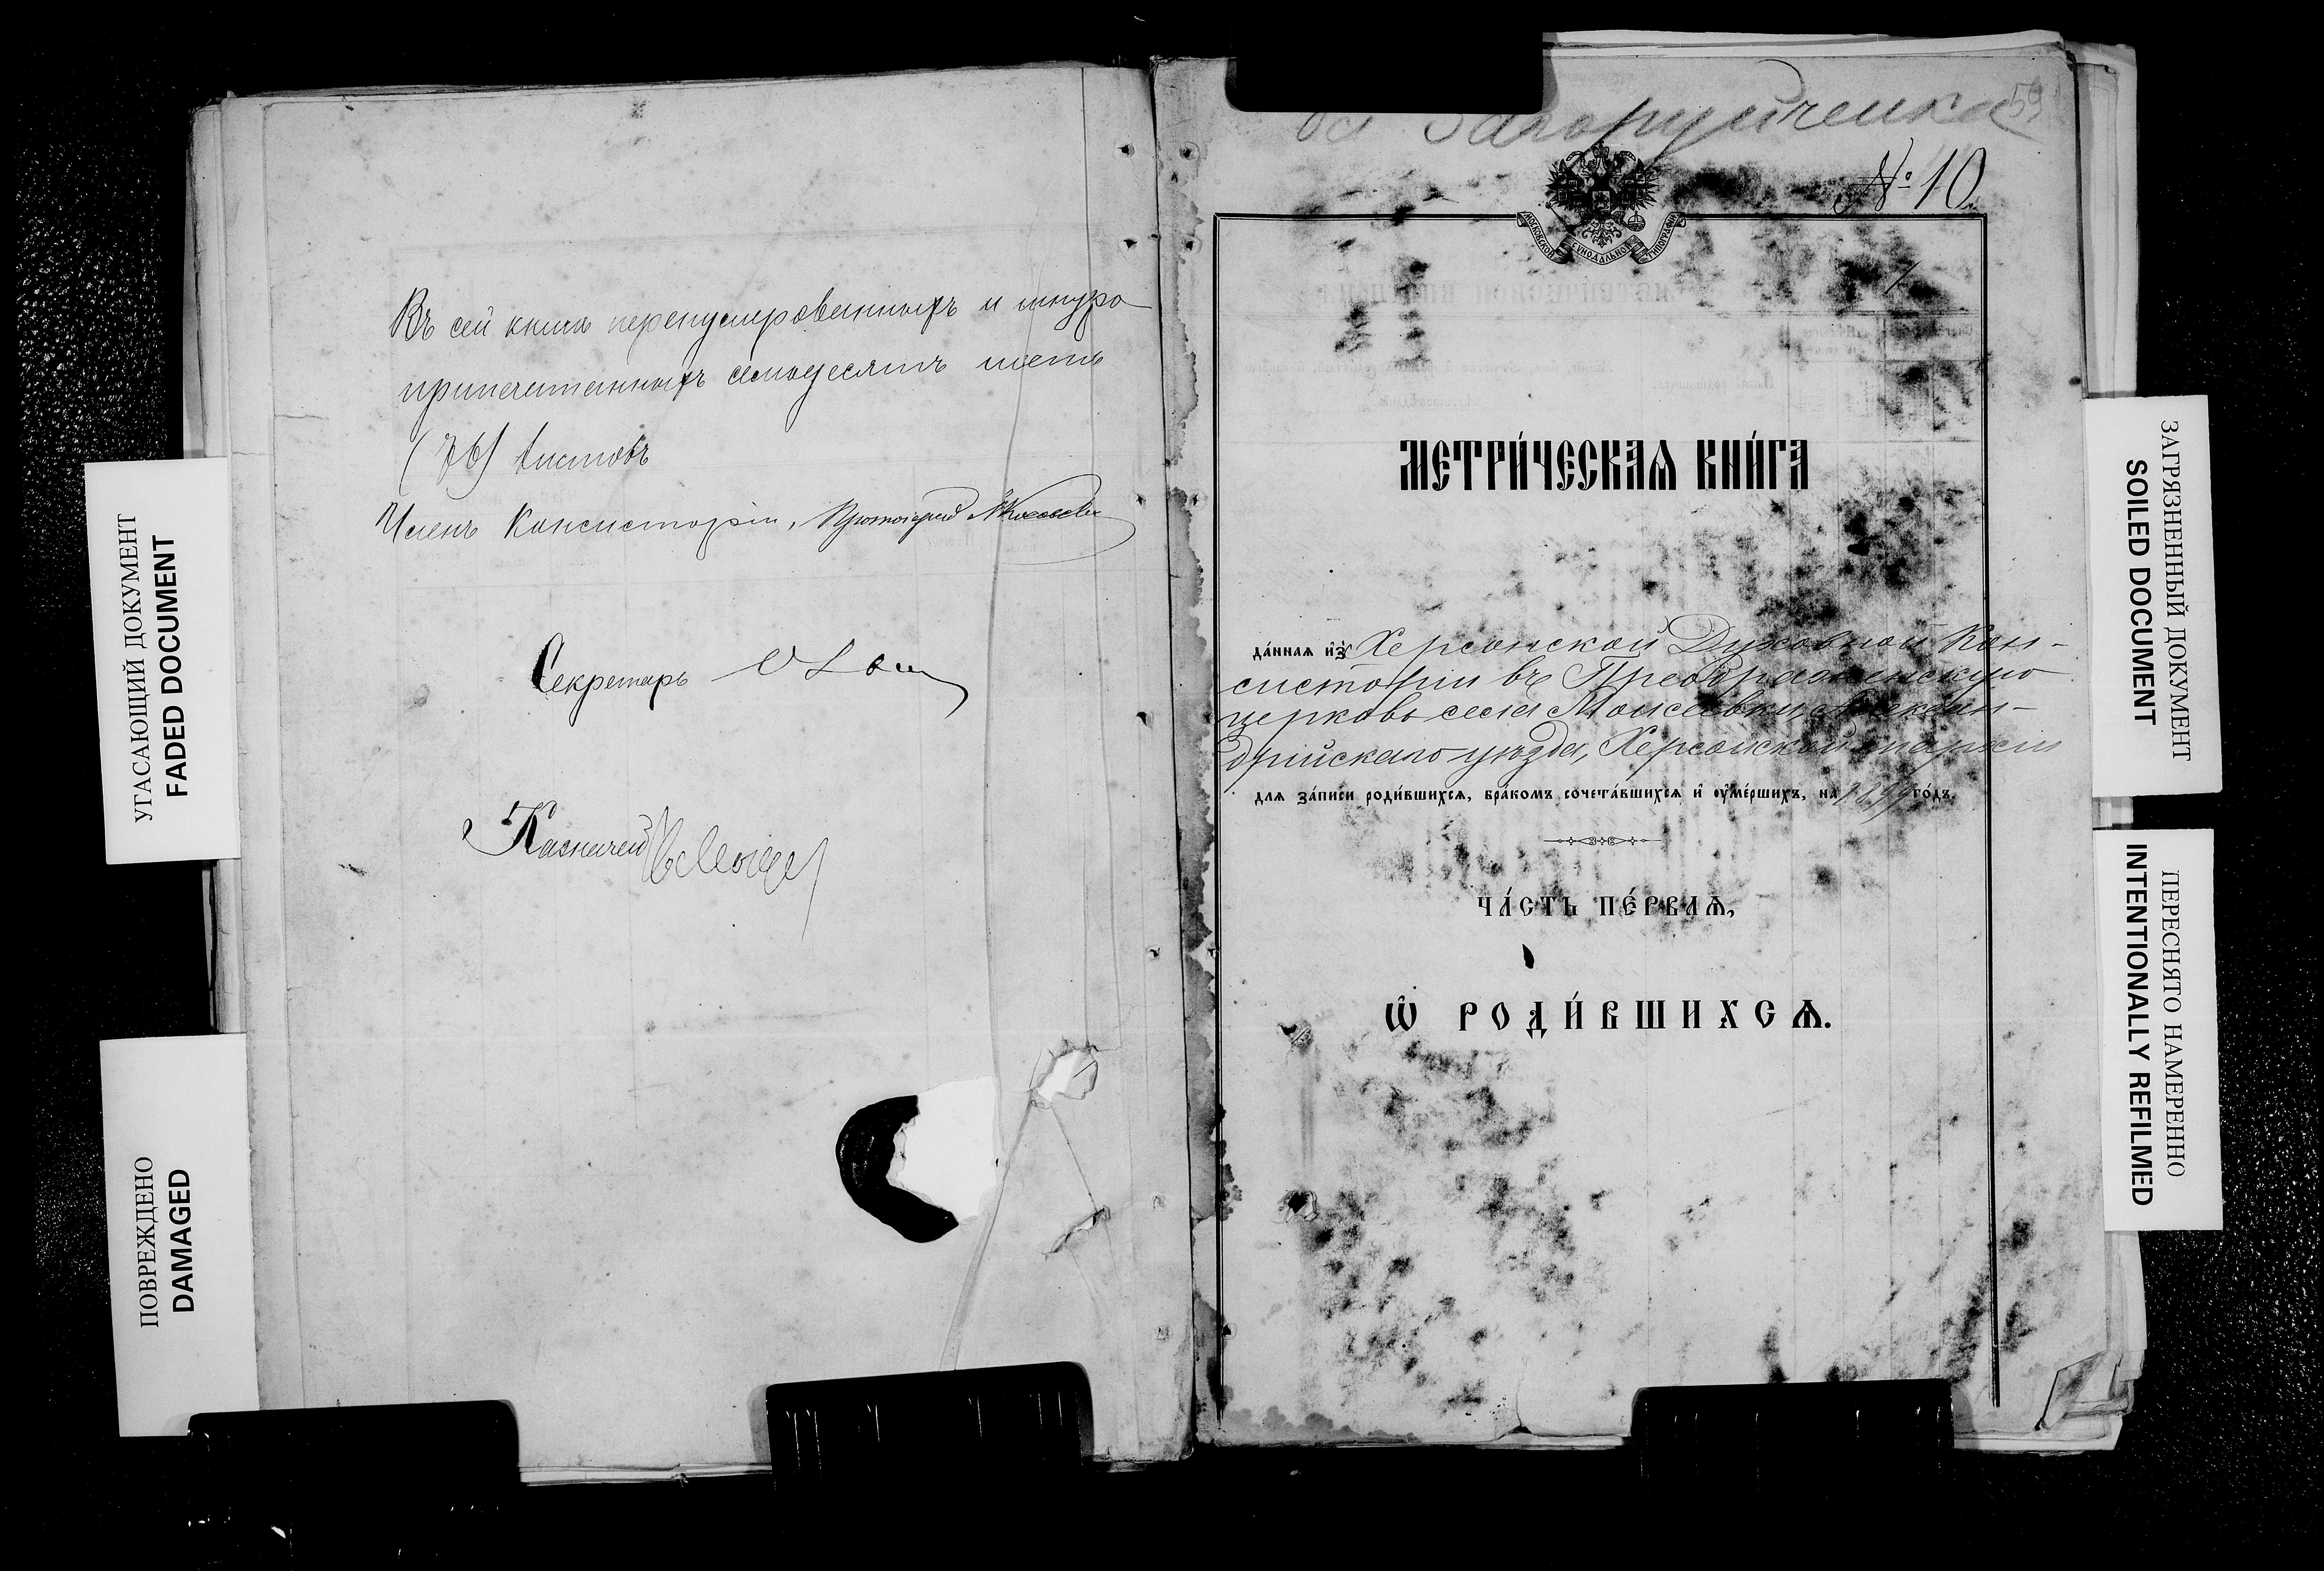 Въ сей книге перенумерованныхъ и шнуро
припечатанныхъ семьдесятъ шесть
(76) листовъ
Членъ Консисторіи, Протоіерей
Секретарь
Казначей
УГАСАЮЩИЙ ДОКУМЕНТ
FADED DOCUMENT
ПОВРЕЖДЕНО
DAMAGED
59
№ 10.
МОСКОВСКОЙ СѴНОДАЛЬНОЙ ТИПОГРАФІИ
МЕТРИ́ЧЕСКАѦ КНИ́ГА
да́нная и҆з̾ Херсонской Духовной Кон-
систоріи въ Преображенскую
церковь села Моисеевки, Алексан-
дрійскаго уѣзда, Херсонской епархіи
для за́писи роди́вшихсѧ, бра́комъ сочета́вшихсѧ и҆ ᲂу҆ме́ршихъ, на 1899 го́дъ.
ЧА́СТЬ ПЕ́РВАѦ,
Ѡ҆ РОДИ́ВШИХСѦ.
ЗАГРЯЗНЕННЫЙ ДОКУМЕНТ
SOILED DOCUMENT
ПЕРЕСНЯТО НАМЕРЕННО
INTENTIONALLY REFILMED